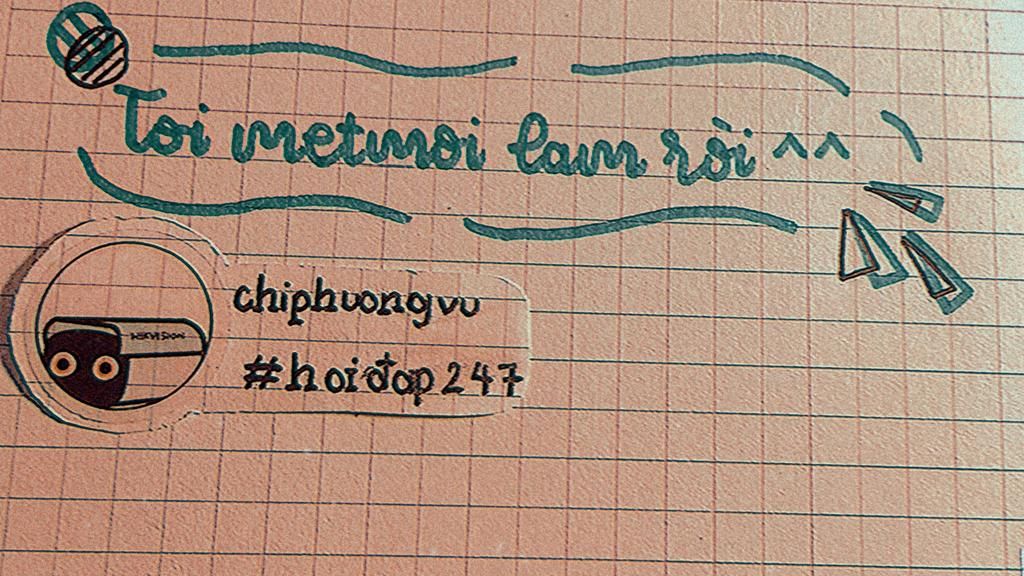 Toi metmoi lam rồi ^^
chiphuongvu
#hoiđap247
HIKVISION